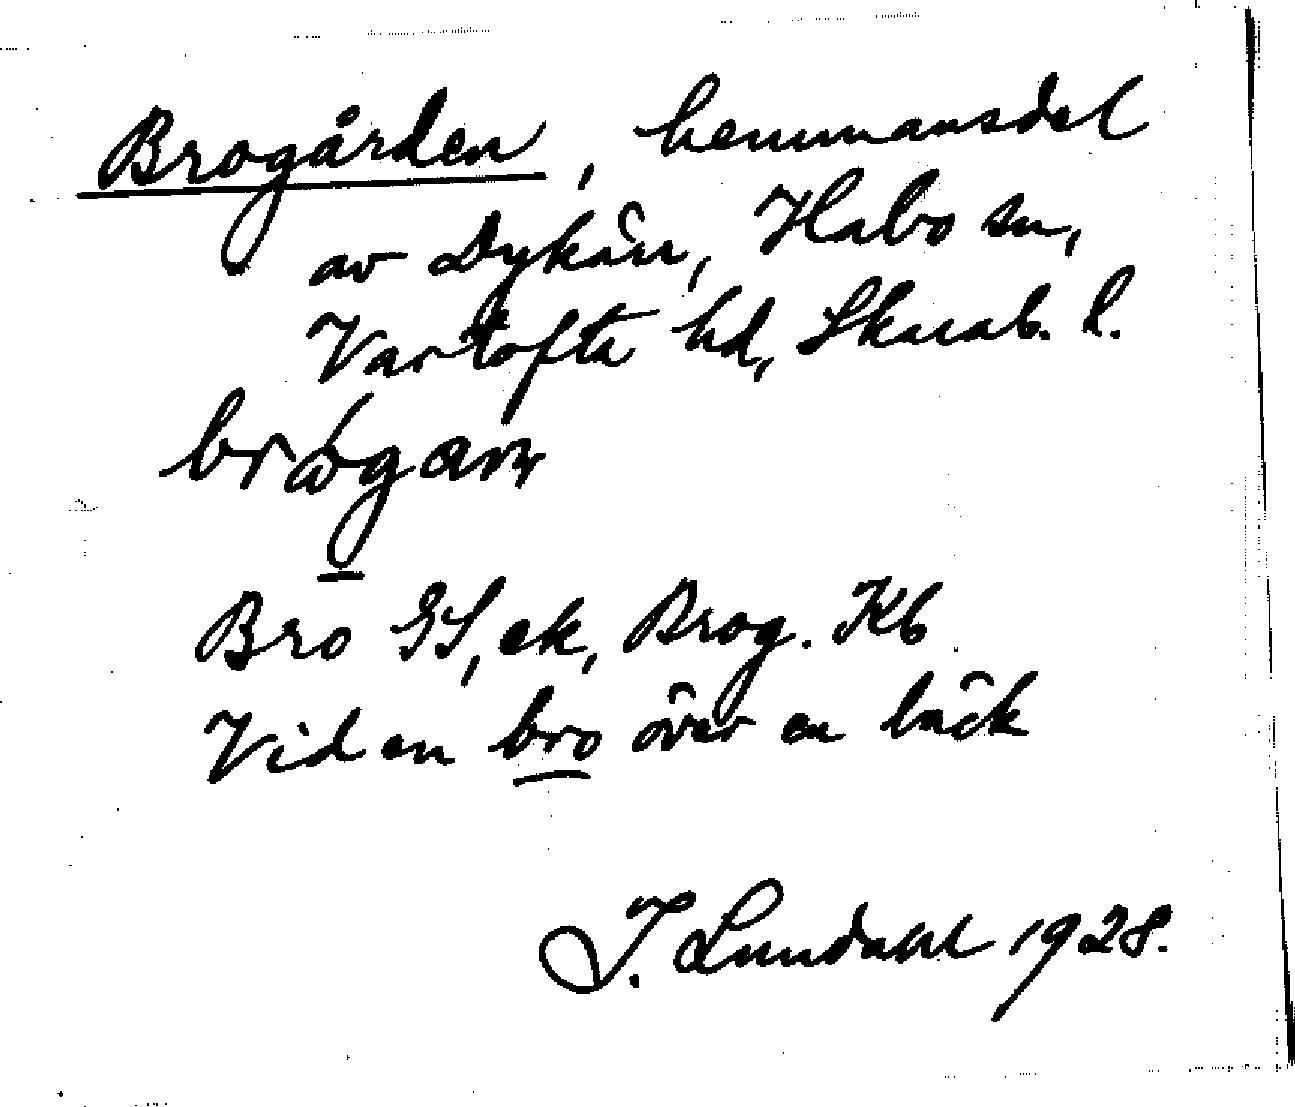 Brogården, hemmansdel
av Dykärr, Habo sn,
Vartofta hd, Skarab. l.
Bro GS, ek, Brog. Kb
Vid en bro över en bäck
I. Lundahl 1928.